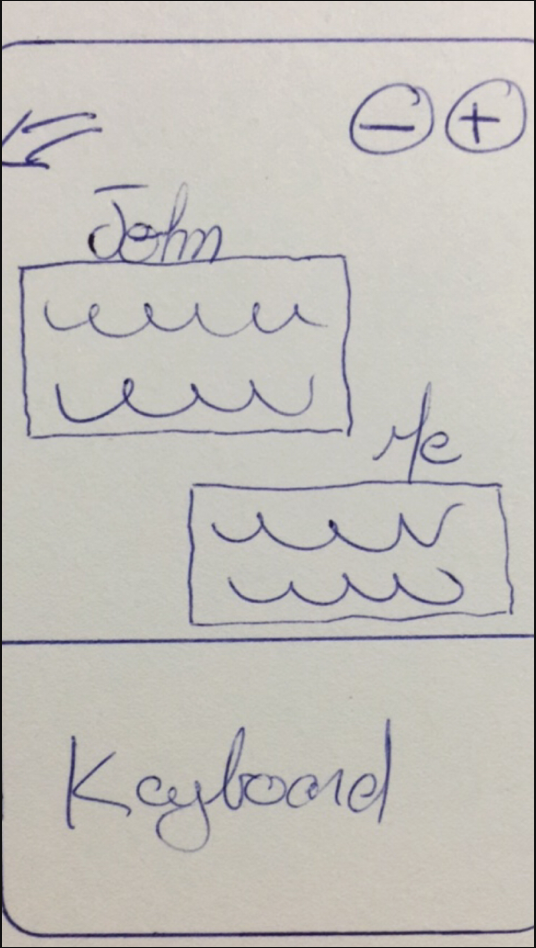 − +
John
Me
Keyboard